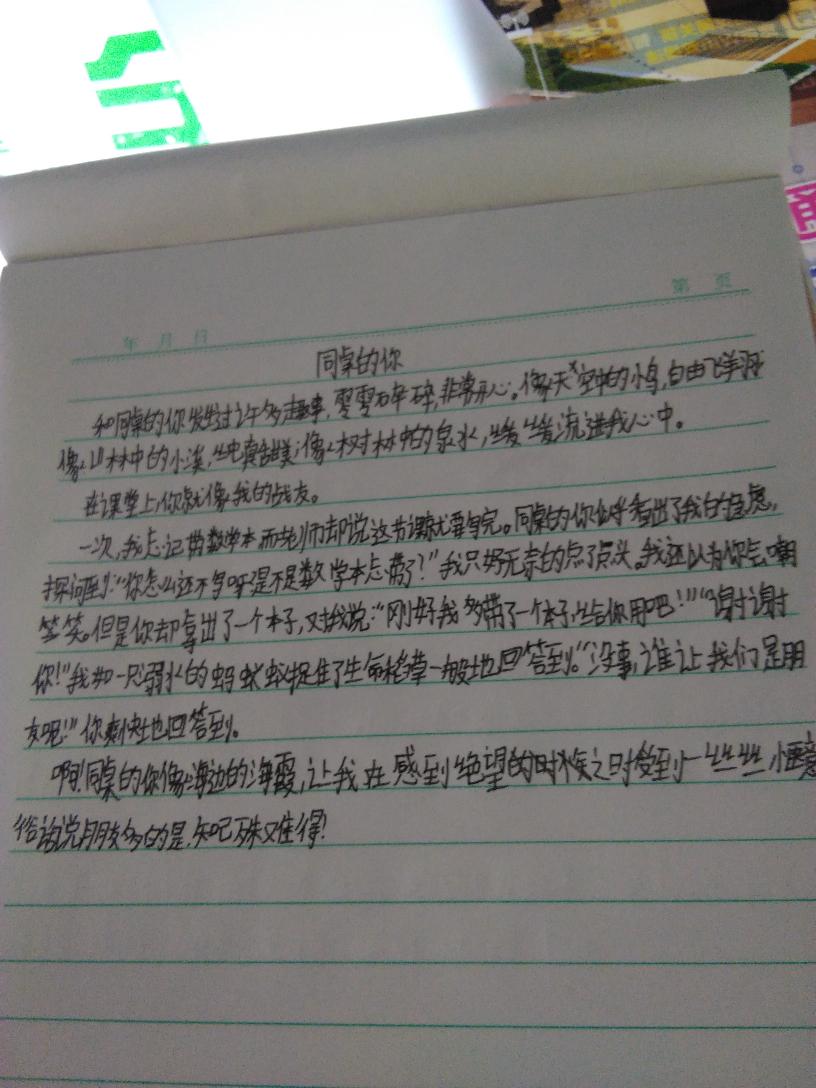 第 页
年 月 日
同桌的你
和同桌的你发生过许多趣事,零零碎碎,非常开心。像天空中的小鸟,自由飞翔;
像山林中的小溪,纯真甜美;像树林中的泉水,缓缓流进我心中。
在课堂上,你就像我的战友。
一次,我忘记带数学本,而老师却说这节课就要写完。同桌的你似乎看出了我的焦虑,
探问到:“你怎么还不写呀?是不是数学本忘带了?”我只好无奈的点了点头。我还以为你会嘲
笑。但是你却拿出了一个本子,对我说:“刚好我多带了一个本子,给你用吧!”“谢谢
你!”我如一只溺水的蚂蚁捉住了生命稻草一般地回答到。“没事,谁让我们是朋
友呢!”你爽快地回答到。
啊!同桌的你像海边的海霞,让我在感到绝望的时候之时受到一丝丝
俗话说朋友多的是,知己殊难得!